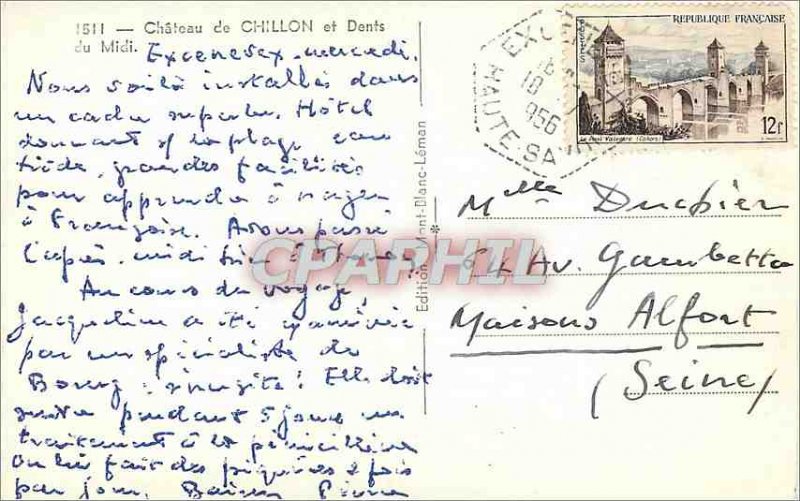 1511 — Château de CHILLON et Dents
du Midi.
Excenevex, mercredi.
Nous voilà installés dans
un cadre superbe. Hôtel
donnant s/ la plage, eau
tiède, grandes facilités
pour apprendre à nager
à Françoise. Avons passé
l'après-midi hier à
Au cours du voyage,
Jacqueline a été examinée
par un spécialiste de
Bourg : sinusite ! Elle doit
suivre pendant 5 jours un
traitement à la pénicilline
on lui fait des piqûres 2 fois
par jour. Baisers Pierre
Edition Mont-Blanc-Léman
EXCENEVEX
18
10
956
HAUTE-SA
REPUBLIQUE FRANÇAISE
POSTES
Le Pont Valentré (Cahors)
12f
Melle Duchier
64 Av. Gambetta
Maisons Alfort
(Seine)
CPARPHIL